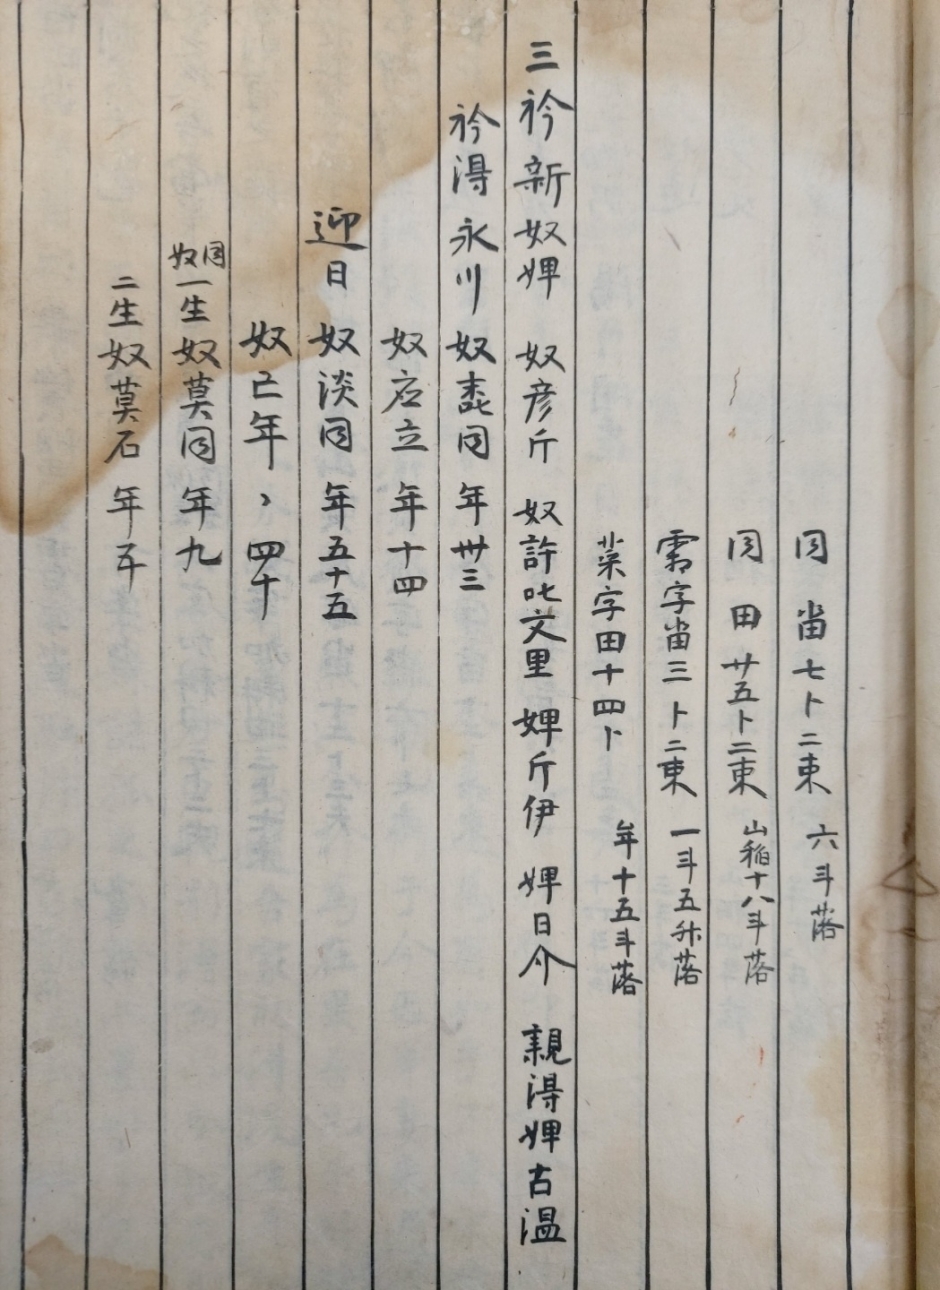 同 畓 七卜二束 六斗落
同 田 廿五卜二束 山稻十八斗落
霜字畓三卜二束 一斗五升落
菜字田十四卜 牟十五斗落
三衿新奴婢 奴彦斤 奴許叱㕛里 婢斤伊 婢日今 親得婢古温
衿得永川 奴同 年卅三
奴应立 年十四
迎日 奴淡同 年五十五
奴己年、四十
同奴一生奴莫同 年九
二生奴莫石 年五